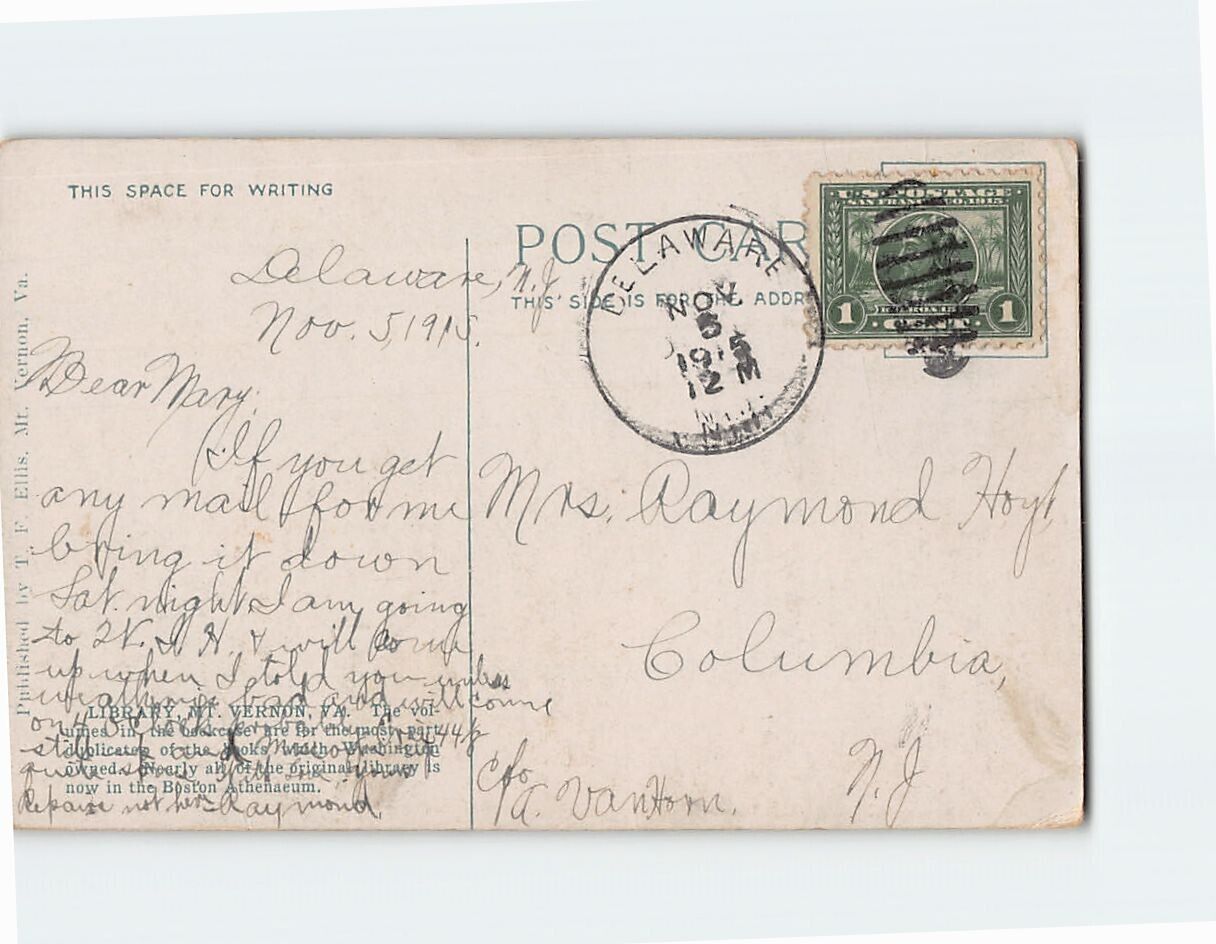 THIS SPACE FOR WRITING
Delaware, N.J
Nov. 5, 1915.
Dear Mary,
If you get
any mail for me
bring it down
Sat. night I am going
to N. H. & will come
up when I told you unless
weather is bad and will come
on
still
Repairs not here Raymond
LIBRARY, MT. VERNON, VA. The vol-
umes in the bookcase are for the most part
duplicates of the books which Washington
owned. Nearly all of the original library is
now in the Boston Athenaeum.
Published by T. F. Ellis, Mt. Vernon, Va.
POST CAR
THIS SIDE IS FOR THE ADDR
DELAWARE
NOV.
5
1915
12 M
N.J.
U.S. POSTAGE
SAN FRANCISCO 1915
BALBOA 1513
1 CENT 1
Mrs. Raymond Hoyt
Columbia,
N.J
c/o
A. VanHorn.